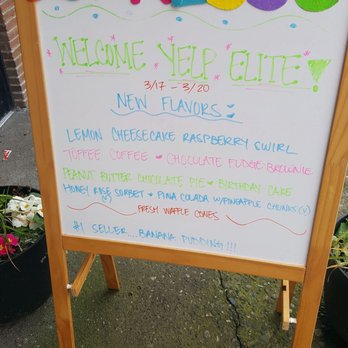 WELCOME YELP ELITE!
3/17 - 3/20
NEW FLAVORS:
LEMON CHEESECAKE RASPBERRY SWIRL
TOFFEE COFFEE ♥ CHOCOLATE FUDGE BROWNIE
PEANUT BUTTER CHOCOLATE PIE ♥ BIRTHDAY CAKE
HONEY ROSE SORBET ♥ PINA COLADA W/PINEAPPLE CHUNKS (V)
(V)
FRESH WAFFLE CONES
#1 SELLER... BANANA PUDDING!!!